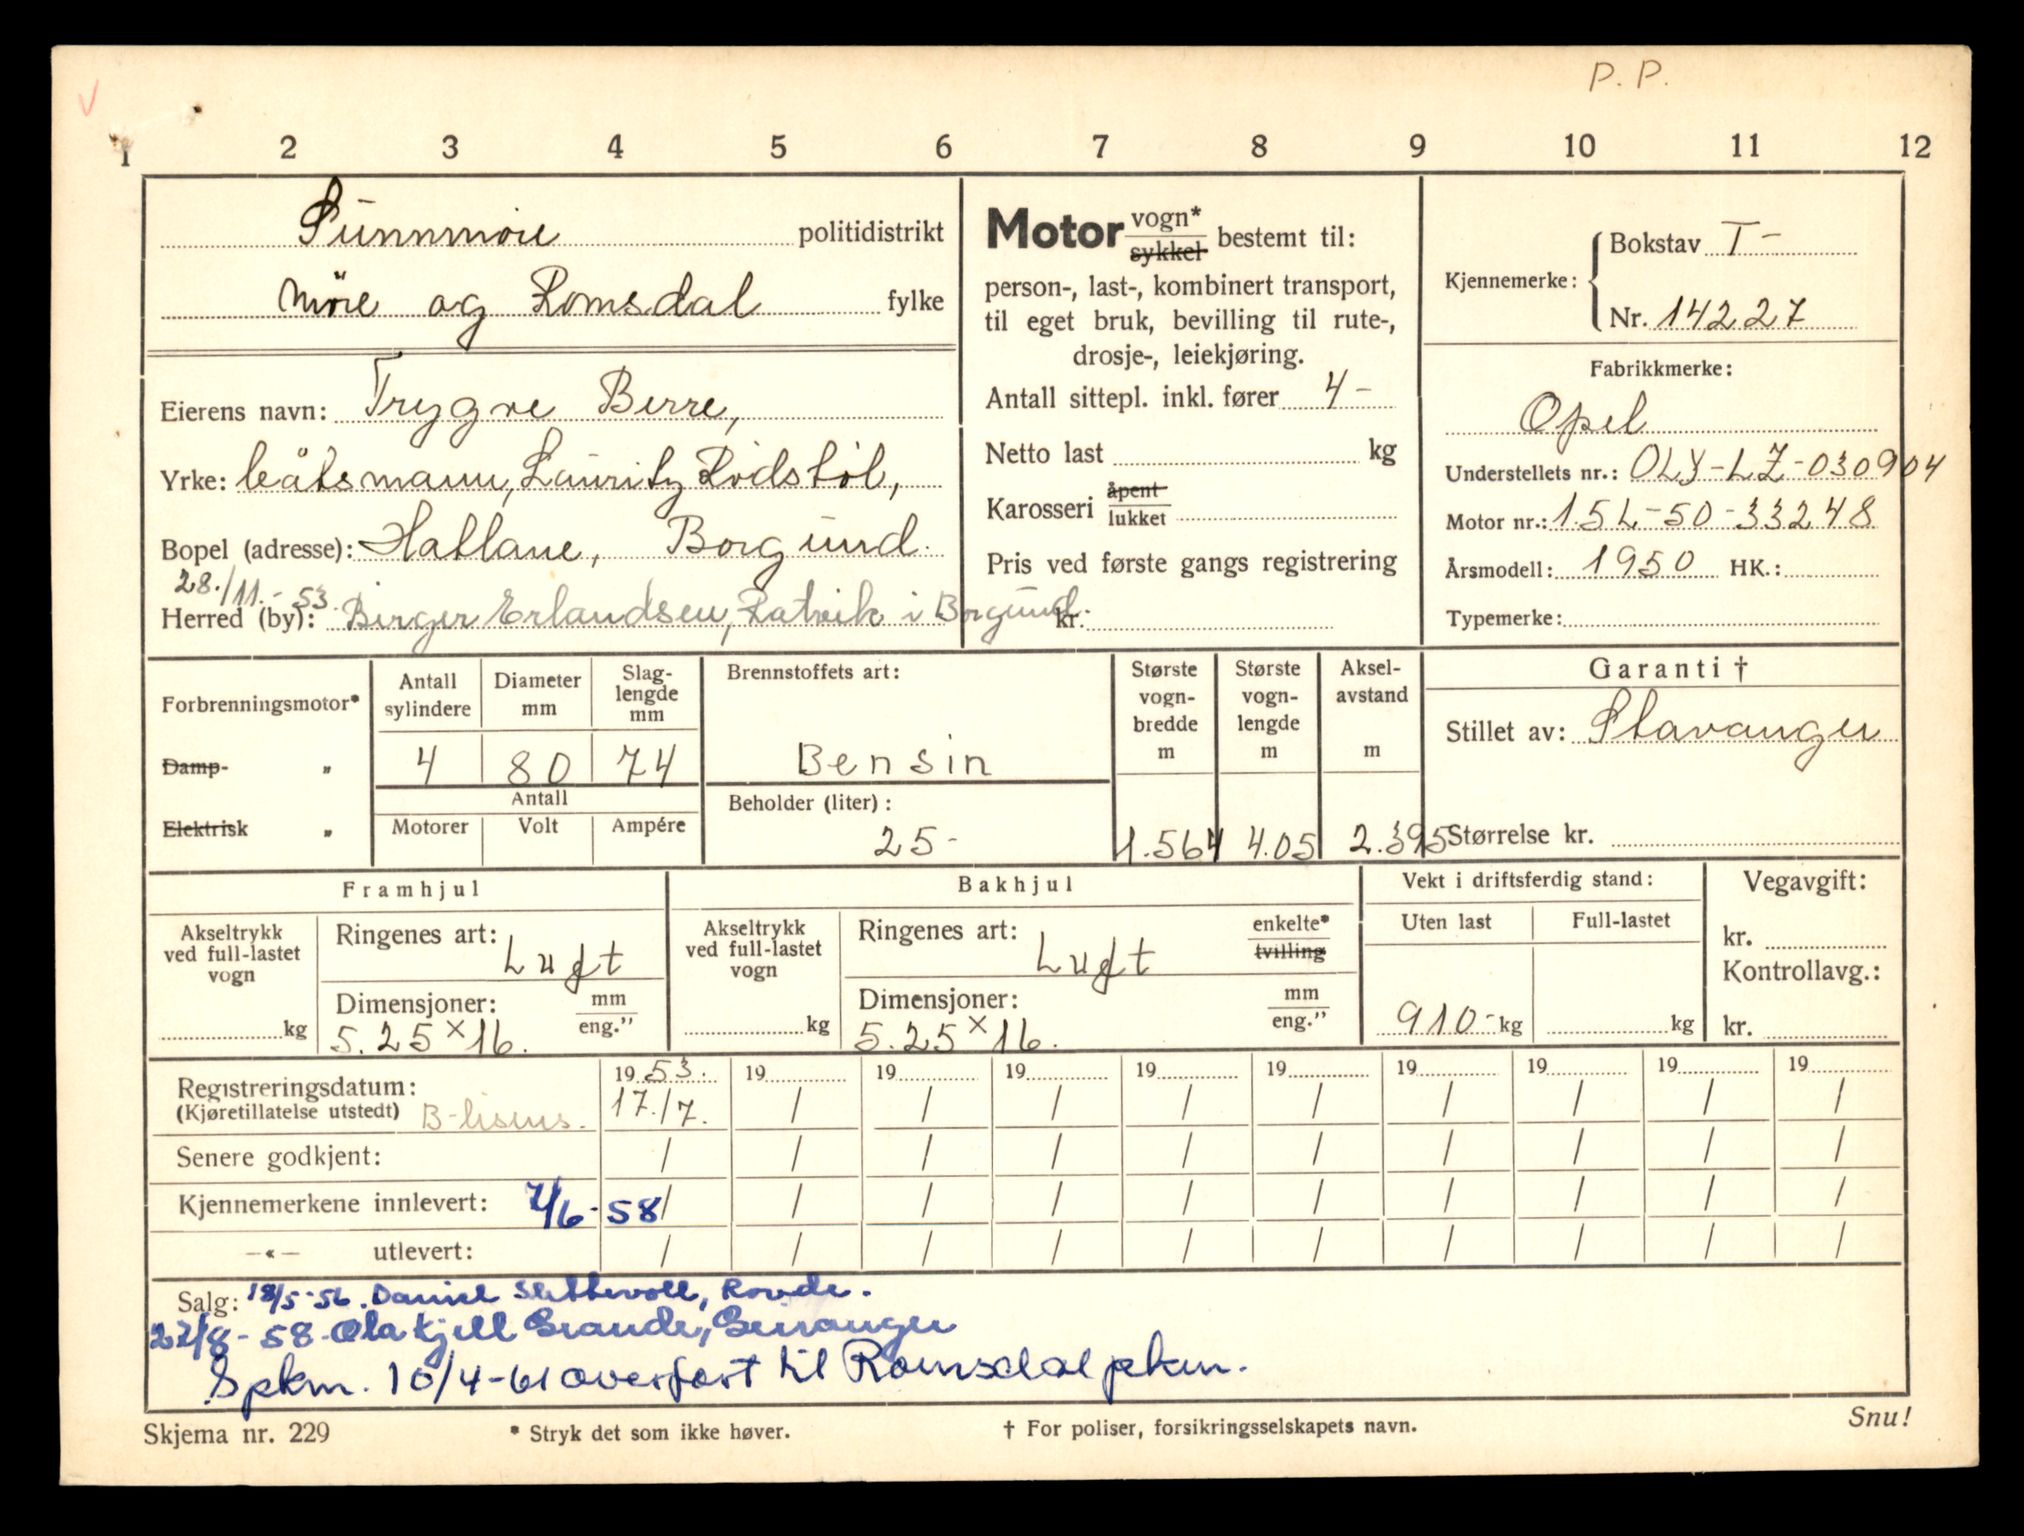 P. P.
1 2 3 4 5 6 7 8 9 10 11 12
Sunnmöre politidistrikt
Möre og Romsdal fylke
Eierens navn: Trygve Berre,
Yrke: båtsmann, Lauritz Rödstöl,
Bopel (adresse): Hatlane, Borgund.
28./11.-53
Herred (by): Birger Erlandsen, Ratvik i Borgund.
Motor vogn* sykkel bestemt til:
person-, last-, kombinert transport,
til eget bruk, bevilling til rute-,
drosje-, leiekjøring.
Antall sittepl. inkl. fører 4-
Netto last kg
Karosseri åpent lukket
Pris ved første gangs registrering
kr.
Kjennemerke: Bokstav T-
Nr. 14227
Fabrikkmerke:
Opel
Understellets nr.: OLY-LZ-030904
Motor nr.: 1.5L-50-33248
Årsmodell: 1950 HK.:
Typemerke:
Forbrenningsmotor*
Damp- „
Elektrisk „
Antall sylindere
Diameter mm
Slag-lengde mm
4 80 74
Antall
Motorer Volt Ampére
Brennstoffets art:
Bensin
Beholder (liter):
25-
Største vogn-bredde m
Største vogn-lengde m
Aksel-avstand m
1.564 4.05 2.395
Garanti †
Stillet av: Stavanger
Størrelse kr.
Framhjul
Akseltrykk ved full-lastet vogn
kg
Ringenes art: Luft
Dimensjoner: mm eng.”
5.25×16.
Bakhjul
Akseltrykk ved full-lastet vogn
kg
Ringenes art: Luft enkelte* tvilling
Dimensjoner: mm eng.”
5.25×16.
Vekt i driftsferdig stand:
Uten last Full-lastet
910- kg kg
Vegavgift:
kr.
Kontrollavg.:
kr.
Registreringsdatum: 19 53. 19 19 19 19 19 19 19 19 19
(Kjøretillatelse utstedt) B-lisens. 17./7. / / / / / / / / /
Senere godkjent: / / / / / / / / / /
Kjennemerkene innlevert: 7/6-58 / / / / / / / / / /
—«— utlevert: / / / / / / / / / /
Salg: 18/5-56. Daniel Slettevoll, Rovde.
27/8-58-Ola Kjell Grande, Geiranger
Spkm. 10/4-61 overført til Romsdal pkm.
Skjema nr. 229 * Stryk det som ikke høver. † For poliser, forsikringsselskapets navn. Snu!